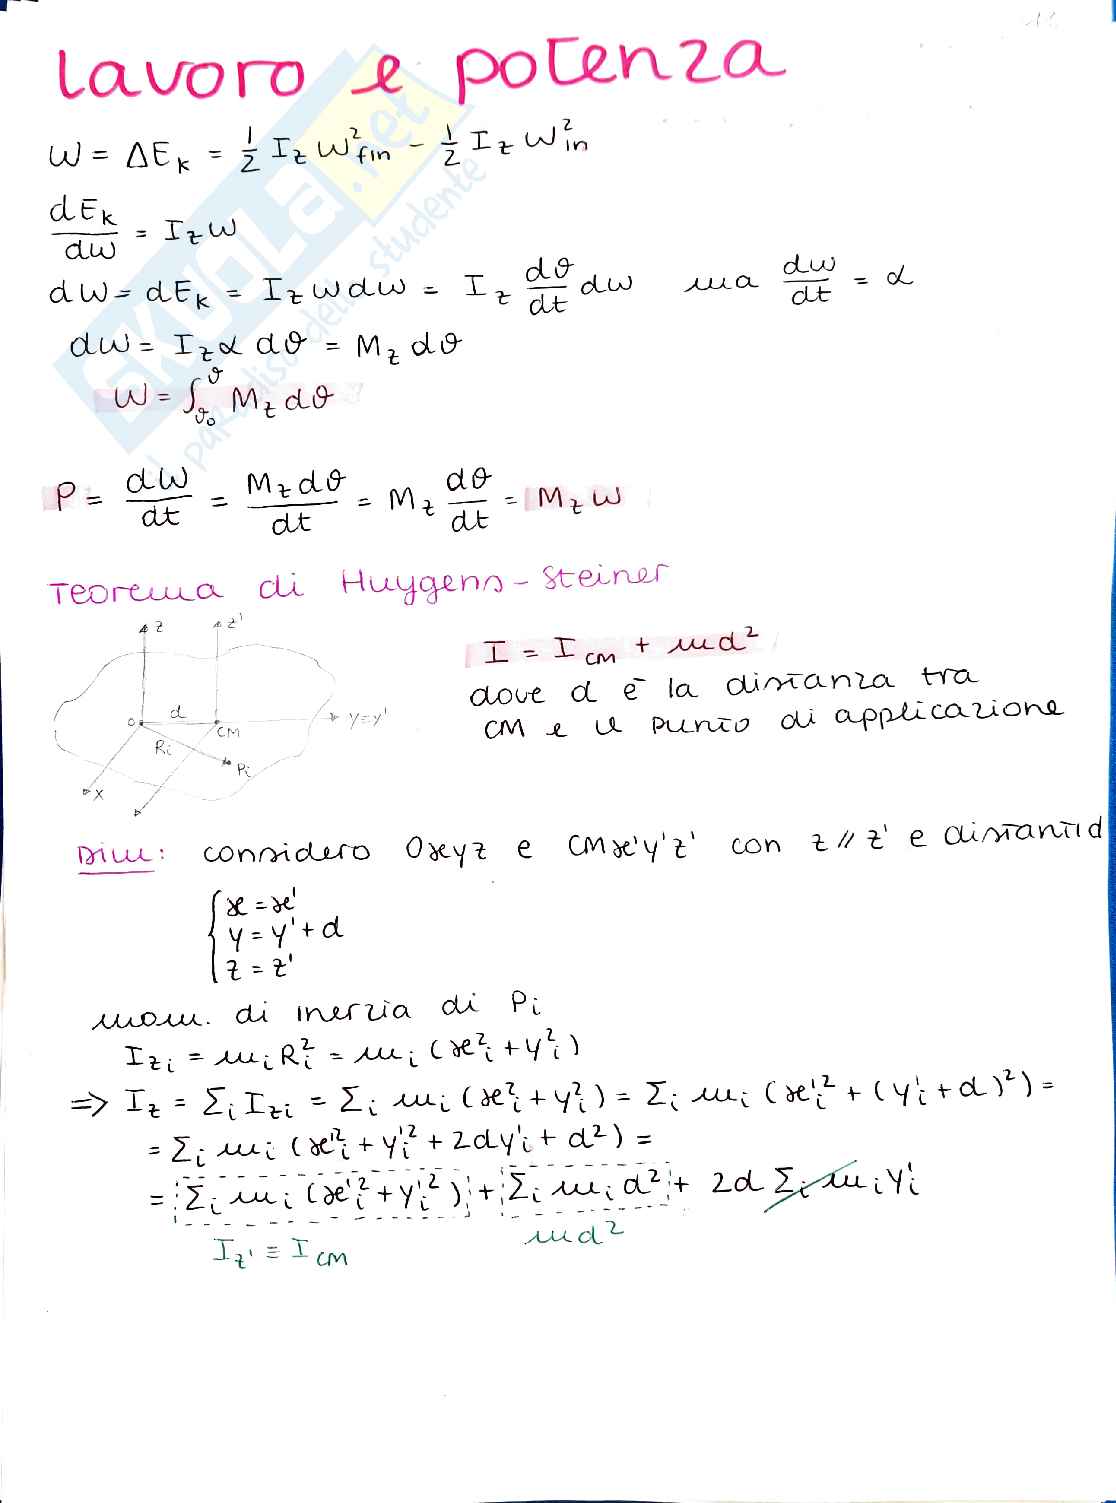 lavoro e potenza
W = ΔE_k = 1/2 I_z ω²_fin − 1/2 I_z ω²_in
dE_k/dω = I_z ω
dW = dE_k = I_z ω dω = I_z dθ/dt dω ma dω/dt = α
dW = I_z α dθ = M_z dθ
W = ∫_θ₀^θ M_z dθ
P = dW/dt = M_z dθ/dt = M_z dθ/dt = M_z ω
Teorema di Huygens-Steiner
z z'
d
O CM y=y'
R_i P_i
x
I = I_CM + md²
dove d è la distanza tra
CM e il punto di applicazione
Dim: considero Oxyz e CMx'y'z' con z // z' e distanti d
x = x'
y = y' + d
z = z'
mom. di inerzia di P_i
I_zi = m_i R_i² = m_i (x_i² + y_i²)
=> I_z = Σ_i I_zi = Σ_i m_i (x_i² + y_i²) = Σ_i m_i (x_i'² + (y_i' + d)²) =
= Σ_i m_i (x_i'² + y_i'² + 2dy_i' + d²) =
= Σ_i m_i (x_i'² + y_i'²) + Σ_i m_i d² + 2d Σ_i m_i y_i'
I_z' ≡ I_CM md²
SKUOLA.net
il paradiso dello studente